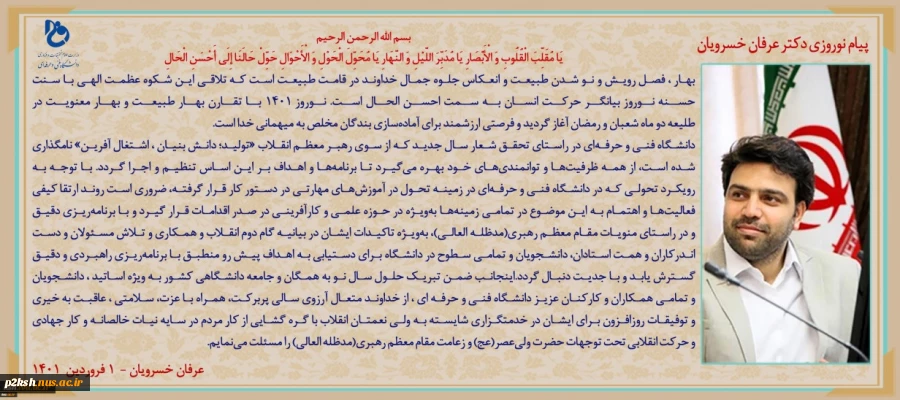 پیام نوروزی دکتر عرفان خسرویان
بسم الله الرحمن الرحیم
یَا مُقَلِّبَ الْقُلُوبِ وَ الْأَبْصَارِ یَا مُدَبِّرَ اللَّیْلِ وَ النَّهَارِ یَا مُحَوِّلَ الْحَوْلِ وَ الْأَحْوَالِ حَوِّلْ حَالَنَا إِلَی أَحْسَنِ الْحَالِ
بهار، فصل رویش و نو شدن طبیعت و انعکاس جلوه جمال خداوند در قامت طبیعت است که تلاقی این شکوه عظمت الهی با سنت
حسنه نوروز بیانگر حرکت انسان به سمت احسن الحال است. نوروز ۱۴۰۱ با تقارن بهار طبیعت و بهار معنویت در
طلیعه دو ماه شعبان و رمضان آغاز گردید و فرصتی ارزشمند برای آماده‌سازی بندگان مخلص به میهمانی خدا است.
دانشگاه فنی و حرفه‌ای در راستای تحقق شعار سال جدید که از سوی رهبر معظم انقلاب «تولید؛ دانش بنیان ، اشتغال آفرین» نامگذاری
شده است، از همه ظرفیت‌ها و توانمندی‌های خود بهره می‌گیرد تا برنامه‌ها و اهداف بر این اساس تنظیم و اجرا گردد. با توجه به
رویکرد تحولی که در دانشگاه فنی و حرفه‌ای در زمینه تحول در آموزش‌های مهارتی در دستور کار قرار گرفته، ضروری است روند ارتقا کیفی
فعالیت‌ها و اهتمام به این موضوع در تمامی زمینه‌ها به‌ویژه در حوزه علمی و کارآفرینی در صدر اقدامات قرار گیرد و با برنامه‌ریزی دقیق
و در راستای منویات مقام معظم رهبری(مدظله العالی)، به‌ویژه تاکیدات ایشان در بیانیه گام دوم انقلاب و همکاری و تلاش مسئولان و دست
اندرکاران و همت استادان، دانشجویان و تمامی سطوح در دانشگاه برای دستیابی به اهداف پیش رو منطبق با برنامه‌ریزی راهبردی و دقیق
گسترش یابد و با جدیت دنبال گردد.اینجانب ضمن تبریک حلول سال نو به همگان و جامعه دانشگاهی کشور به ویژه اساتید ، دانشجویان
و تمامی همکاران و کارکنان عزیز دانشگاه فنی و حرفه ای ، از خداوند متعال آرزوی سالی پربرکت، همراه با عزت، سلامتی ، عاقبت به خیری
و توفیقات روزافزون برای ایشان در خدمتگزاری شایسته به ولی نعمتان انقلاب با گره گشایی از کار مردم در سایه نیات خالصانه و کار جهادی
و حرکت انقلابی تحت توجهات حضرت ولی‌عصر(عج) و زعامت مقام معظم رهبری(مدظله العالی) را مسئلت می‌نمایم.
عرفان خسرویان - ۱ فروردین ۱۴۰۱
p2ksh.nus.ac.ir